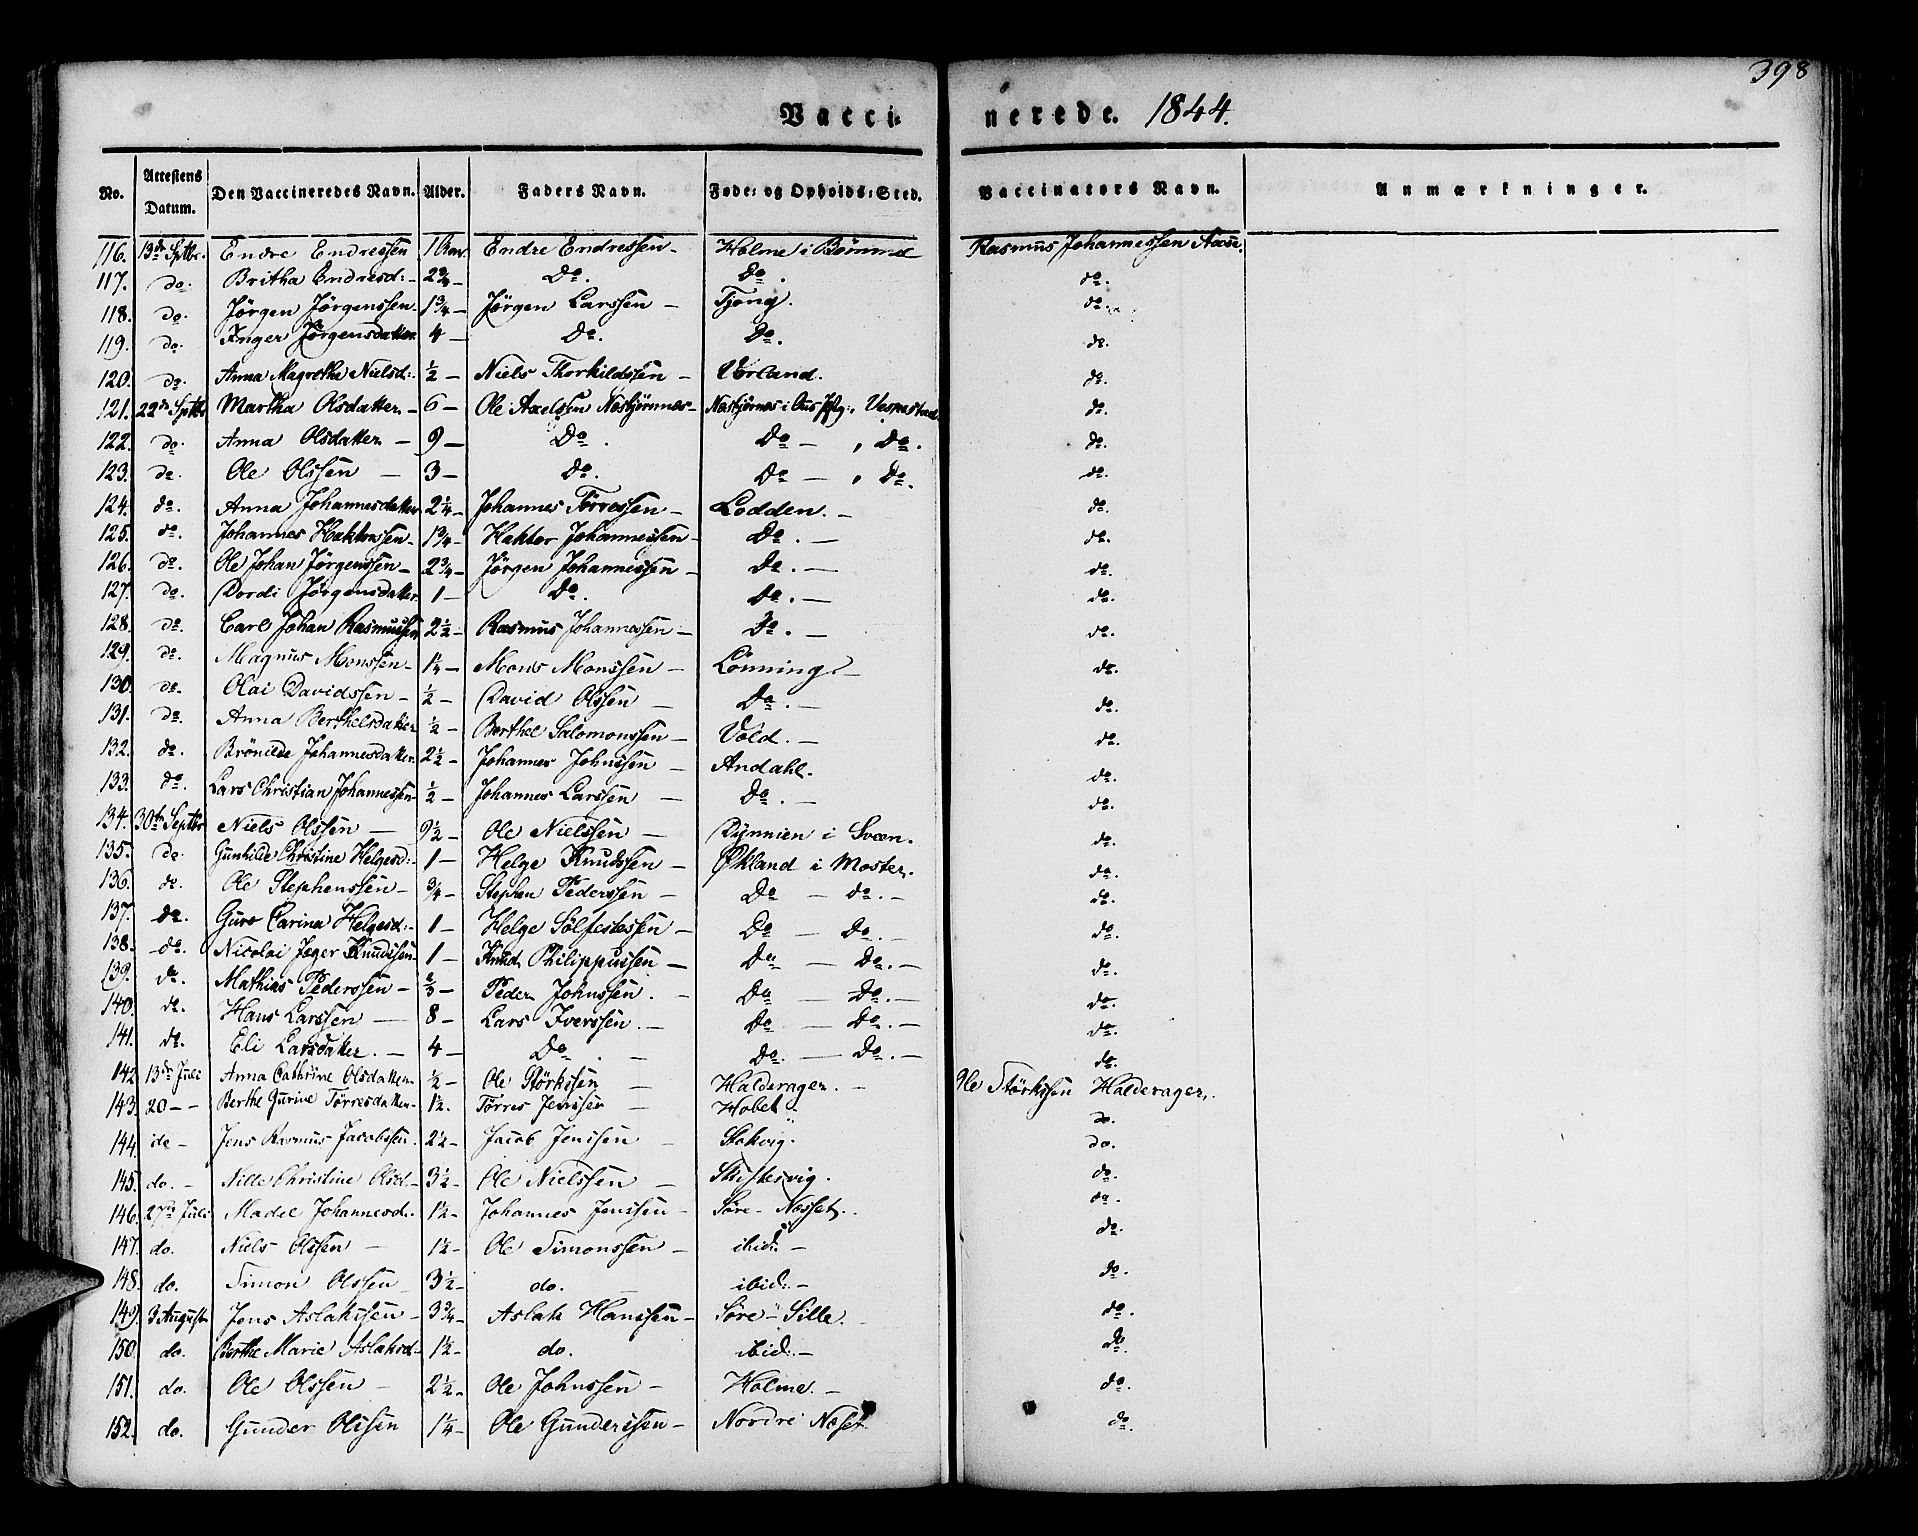 398
Vacci- nerede. 1844.
No. Attestens Datum. Den Vaccineredes Navn. Alder. Faders Navn. Føde- og Opholds-Sted. Vaccinators Navn. Anmærkninger.
116. 13de Septbr. Endre Endressen 1 Endre Endressen - Holme i Rasmus Johannessen
117. do. Britha Endresd: - 2 3/4 - Do. Do. do.
118. do. Jørgen Jørgenssen - 1 3/4 - Jørgen Larssen - Tjong. do.
119. do. Inger Jørgensdatter 4 - Do. Do. do.
120. do. Anna Magretha Nielsd: 1/2 - Niels Thorkildssen - Vorland. do.
121. 22de Septbr Martha Olsdatter - 6 - Ole Axelssen Næstjørnnæs - Næstjørnæs i , Vespestad do.
122. do. Anna Olsdatter - 9 - Do. Do - , Do. do.
123. do. Ole Olssen - 3 - Do. Do - , Do. do.
124. do. Anna Johannesdatter 2 1/4 - Johannes Tørressen - Lodden. - do.
125. do. Johannes Haktorssen - 1 3/4 - Haktor Johannessen - Do. - do.
126. do. Ole Johan Jørgenssen - 2 3/4 - Jørgen Johannessen - Do. - do.
127. do. Dordi Jørgensdatter 1 - Do. Do. - do.
128. do. Carl Johan Rasmussen 2 1/2 - Rasmus Johannessen - Do. - do.
129. do. Magnus Monssen - 1 1/4 - Mons Monssen - Lønning - do.
130. do. Olai Davidssen - 1/2 - David Olssen - Do. - do.
131. do. Anna Berthelsdatter 1/2 - Berthel Salomonssen - Vold. - do.
132. do. Brønilde Johannesdatter 2 1/2 - Johannes Johnssen - Andahl. do.
133. do. Lars Christian Johannessen - 1/2 - Johannes Larssen - Do. - do.
134. 30te Septbr Niels Olssen - 9 1/2 - Ole Nielssen - Rynnien i Svæen. do.
135. do. Gunhilde Christine Helgesd: - 1 - Helge Knudssen - Økland i Moster. do.
136. do. Ole Stephenssen - 3/4 - Stephen Pederssen - Do - do. - do.
137. do. Guro Carina Helgesd: - 1 - Helge Sølfestessen - Do - Do. - do.
138. do. Nicolai Jæger Knudssen - 1 - Knud Philippussen - Do - Do. - do.
139. do. Mathias Pederssen - 2/3 - Peder Johnssen. - Do - Do. - do.
140. do. Hans Larssen - 8 - Lars Iverssen. - Do - Do. - do.
141. do. Eli Larsdatter. - 4 - Do. - Do. - Do. - do.
142 13de Juli Anna Cathrine Olsdatter - 1/2 - Ole Størkssen - Halderager. - Ole Størkssen Halderager.
143. 20 - - Berthe Gurine Tørresdatter - 1 1/2. Tørres Jenssen - Habet - do.
144. do - Jens Rasmus Jacobssen. 2 1/2 - Jacob Jenssen - Stokvig. do.
145. do. - Nille Christine Olsd - 3 1/2 - Ole Nielssen - do.
146. 27de Juli Madel Johannesd. 1 1/2 - Johannes Jenssen - Søre - Næsset. do.
147. do. Niels Olssen - 1 1/2 - Ole Simonssen - ibid: - do.
148. do. Simon Olssen 3 1/2 - do. - ibid: - do.
149. 3 August Jens Aslakssen - 3 3/4 - Aslak Hanssen - Søre - Sille. do.
150. do. Berthe Marie Aslaksd - 1 1/2 - do. ibid: - do.
151. do. Ole Olssen - 2 1/2 - Ole Johnssen - Holme. - do.
152. do. Gunder Olssen 1 1/4 - Ole Gunderssen - Nordre Næset do.